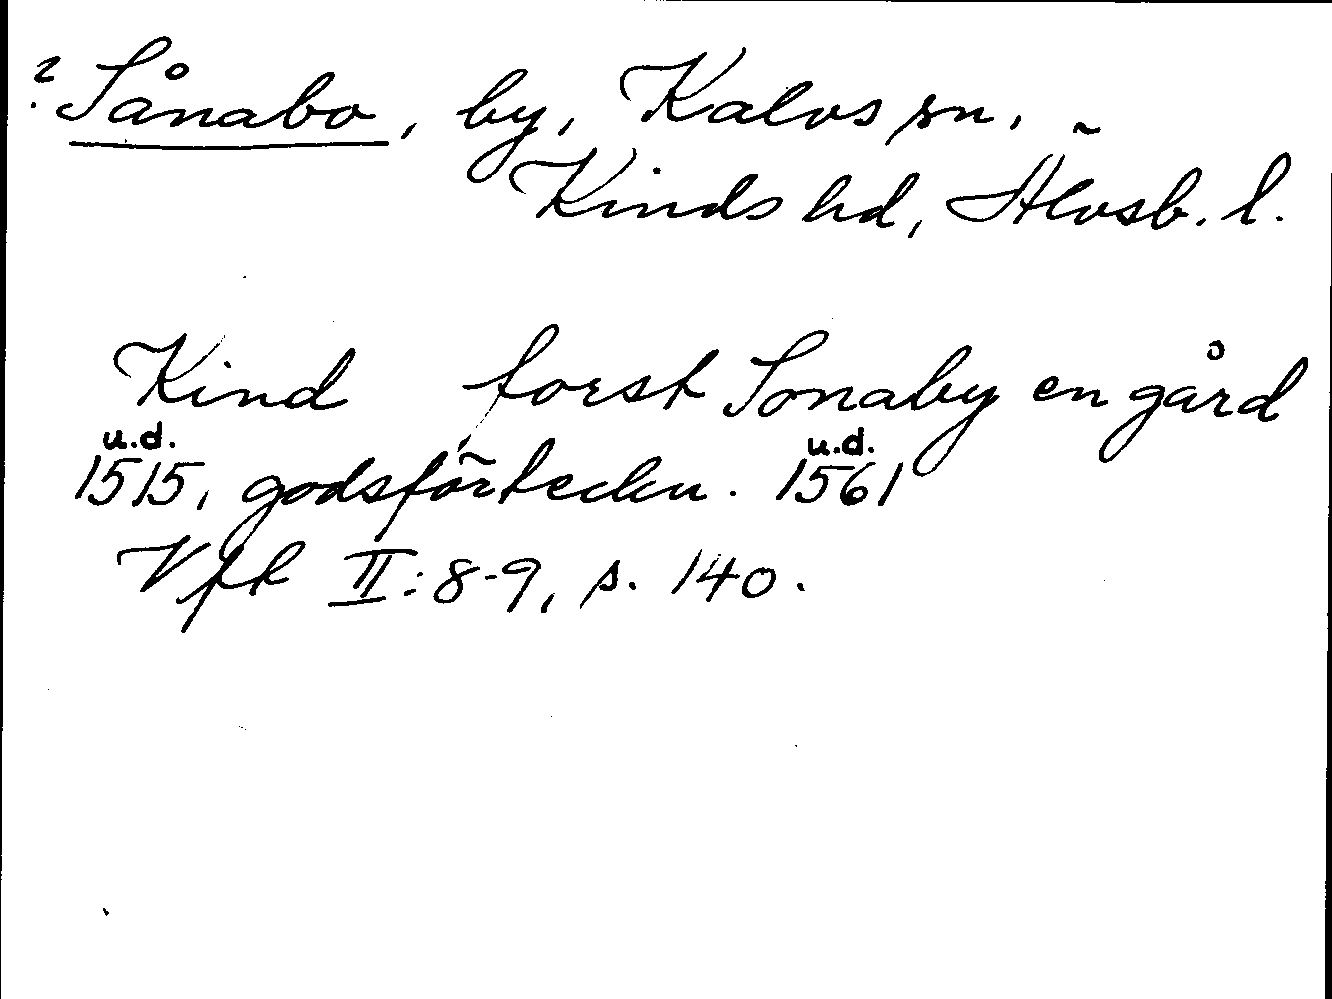 ? Sånabo, by, Kalvs sn,
Kinds hd, Älvsb. l.
Kind forst Sonaby en gård
u.d. u.d.
1515, godsförteckn. 1561
Vfk II:8-9, s. 140.